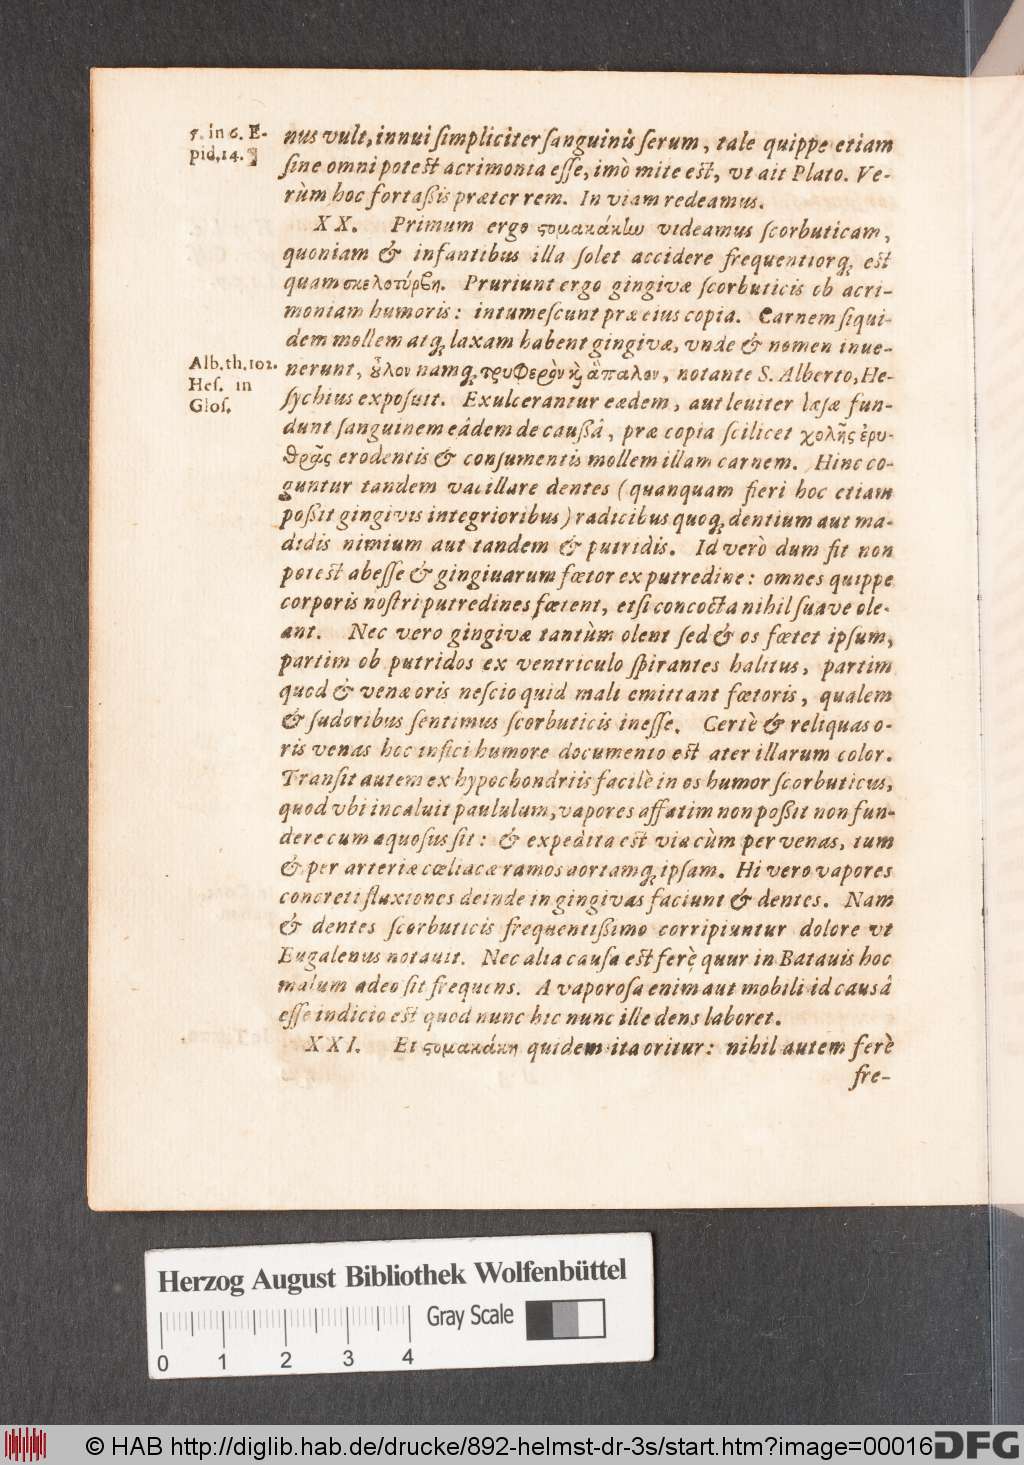 7. in 6. E-
pid. 14.
nus vult, innui simpliciter sanguinis serum, tale quippe etiam
sine omni potest acrimonia esse, imò mite est, vt ait Plato. Ve-
rùm hoc fortaßis præter rem. In viam redeamus.
XX. Primum ergo ϛομακάκην videamus scorbuticam,
quoniam & infantibus illa solet accidere frequentiorq́; est
quam σκελοτύρβη. Pruriunt ergo gingivæ scorbuticis ob acri-
moniam humoris: intumescunt præ eius copia. Carnem siqui-
dem mollem atq́; laxam habent gingivæ, vnde & nomen inue-
Alb. th. 102.
Hes. in
Glos.
nerunt, οὖλον namq́; τρυφερὸν κὶ ἅπαλον, notante S. Alberto, He-
sychius exposuit. Exulcerantur eædem, aut leuiter læsæ fun-
dunt sanguinem eâdem de caußâ, præ copia scilicet χολῆς ἐρυ-
θρᾶς erodentis & consumentis mollem illam carnem. Hinc co-
guntur tandem vacillare dentes (quanquam fieri hoc etiam
poßit gingivis integrioribus) radicibus quoq́; dentium aut ma-
didis nimium aut tandem & putridis. Id verò dum fit non
potest abesse & gingiuarum fœtor ex putredine: omnes quippe
corporis nostri putredines fœtent, etsi concocta nihil suave ole-
ant. Nec vero gingivæ tantùm olent sed & os fœtet ipsum,
partim ob putridos ex ventriculo spirantes halitus, partim
quod & venæ oris nescio quid mali emittant fœtoris, qualem
& sudoribus sentimus scorbuticis inesse. Certè & reliquas o-
ris venas hoc infici humore documento est ater illarum color.
Transit autem ex hypochondriis facilè in os humor scorbuticus,
quod vbi incaluit paululum, vapores affatim non poßit non fun-
dere cum aquosus sit: & expedita est via cùm per venas, tum
& per arteriæ cœliacæ ramos aortamq́; ipsam. Hi vero vapores
concreti fluxiones deinde in gingivas faciunt & dentes. Nam
& dentes scorbuticis frequentißimo corripiuntur dolore vt
Eugalenus notauit. Nec alia causa est ferè quur in Batauis hoc
malum adeo sit frequens. A vaporosa enim aut mobili id causâ
esse indicio est quod nunc hic nunc ille dens laboret.
XXI. Et ϛομακάκη quidem ita oritur: nihil autem ferè
fre-
Herzog August Bibliothek Wolfenbüttel
Gray Scale
0 1 2 3 4
© HAB http://diglib.hab.de/drucke/892-helmst-dr-3s/start.htm?image=00016
DFG